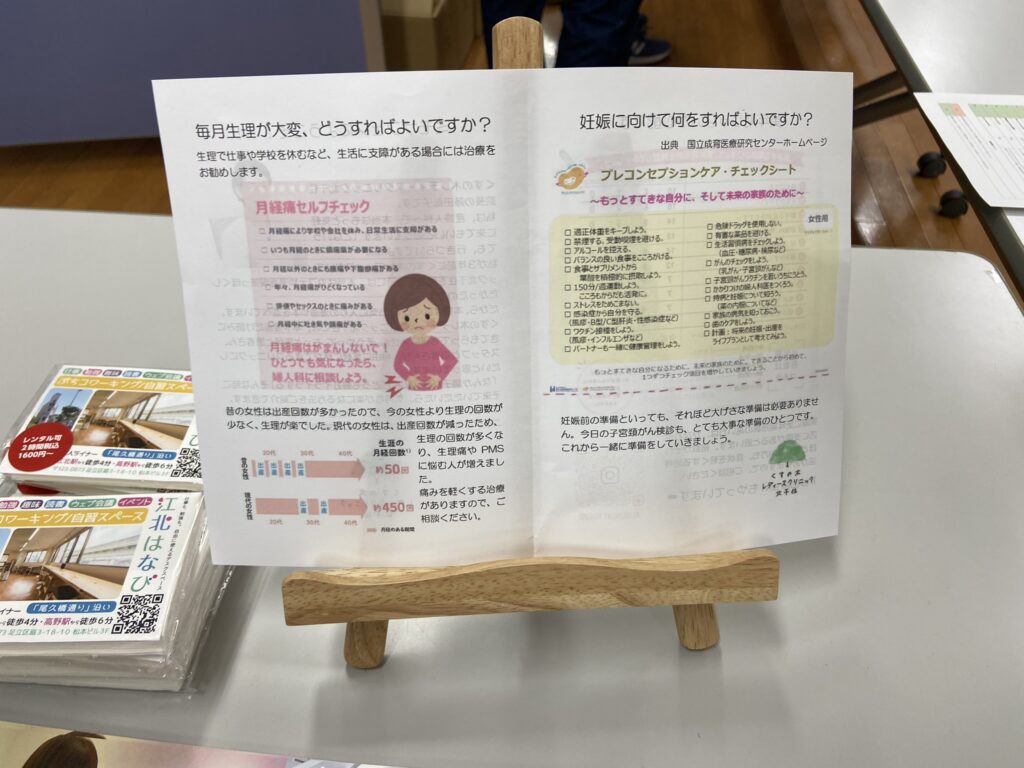 毎月生理が大変、どうすればよいですか？
生理で仕事や学校を休むなど、生活に支障がある場合には治療を
お勧めします。
月経痛セルフチェック
□ 月経痛により学校や会社を休み、日常生活に支障がある
□ いつも月経のときに鎮痛薬が必要になる
□ 月経以外のときにも腰痛や下腹部痛がある
□ 年々、月経痛がひどくなっている
□ 排便やセックスのときに痛みがある
□ 月経中に吐き気や頭痛がある
月経痛はがまんしないで！
ひとつでも気になったら、
婦人科に相談しよう。
昔の女性は出産回数が多かったので、今の女性より生理の回数が
少なく、生理が楽でした。現代の女性は、出産回数が減ったため、
生理の回数が多くな
り、生理痛や PMS
に悩む人が増えまし
た。
痛みを軽くする治療
がありますので、ご
相談ください。
生涯の
月経回数
20代 30代 40代
昔の女性
出産 出産 出産 出産
約50回
現代の女性
出産 出産
約450回
20代 30代 40代
月経のある期間
妊娠に向けて何をすればよいですか？
出典 国立成育医療研究センターホームページ
プレコンセプションケア・チェックシート
～もっとすてきな自分に、そして未来の家族のために～
女性用
□ 適正体重をキープしよう。
□ 禁煙する。受動喫煙を避ける。
□ アルコールを控える。
□ バランスの良い食事をこころがける。
□ 食事とサプリメントから
葉酸を積極的に摂取しよう。
□ 150分/週運動しよう。
こころもからだも活発に。
□ ストレスをためこまない。
□ 感染症から自分を守る。
(風疹・B型/C型肝炎・性感染症など)
□ ワクチン接種をしよう。
(風疹・インフルエンザなど)
□ パートナーも一緒に健康管理をしよう。
□ 危険ドラッグを使用しない。
□ 有害な薬品を避ける。
□ 生活習慣病をチェックしよう。
(血圧・糖尿病・検尿など)
□ がんのチェックをしよう。
(乳がん・子宮頸がんなど)
□ 子宮頸がんワクチンを若いうちにうとう。
□ かかりつけの婦人科医をつくろう。
□ 持病と妊娠について知ろう。
(薬の内服についてなど)
□ 家族の病気を知っておこう。
□ 歯のケアをしよう。
□ 計画：将来の妊娠・出産を
ライフプランとして考えてみよう。
もっとすてきな自分になるために、未来の家族のために、できることから始めて、
1つずつチェック項目を増やしていきましょう。
妊娠前の準備といっても、それほど大げさな準備は必要ありませ
ん。今日の子宮頸がん検診も、とても大事な準備のひとつです。
これから一緒に準備をしていきましょう。
くすの木
レディースクリニック
北千住
ウェブ会議
コワーキング/自習スペース
レンタル可
2時間税込
1600円～
「尾久橋通り」沿い
徒歩4分・高野駅から徒歩6分
ウェブ会議 イベント
コワーキング/自習スペース
江北はなび
ライナー 「尾久橋通り」沿い
徒歩4分・高野駅から徒歩6分
足立区扇3-18-10 松本ビル3F